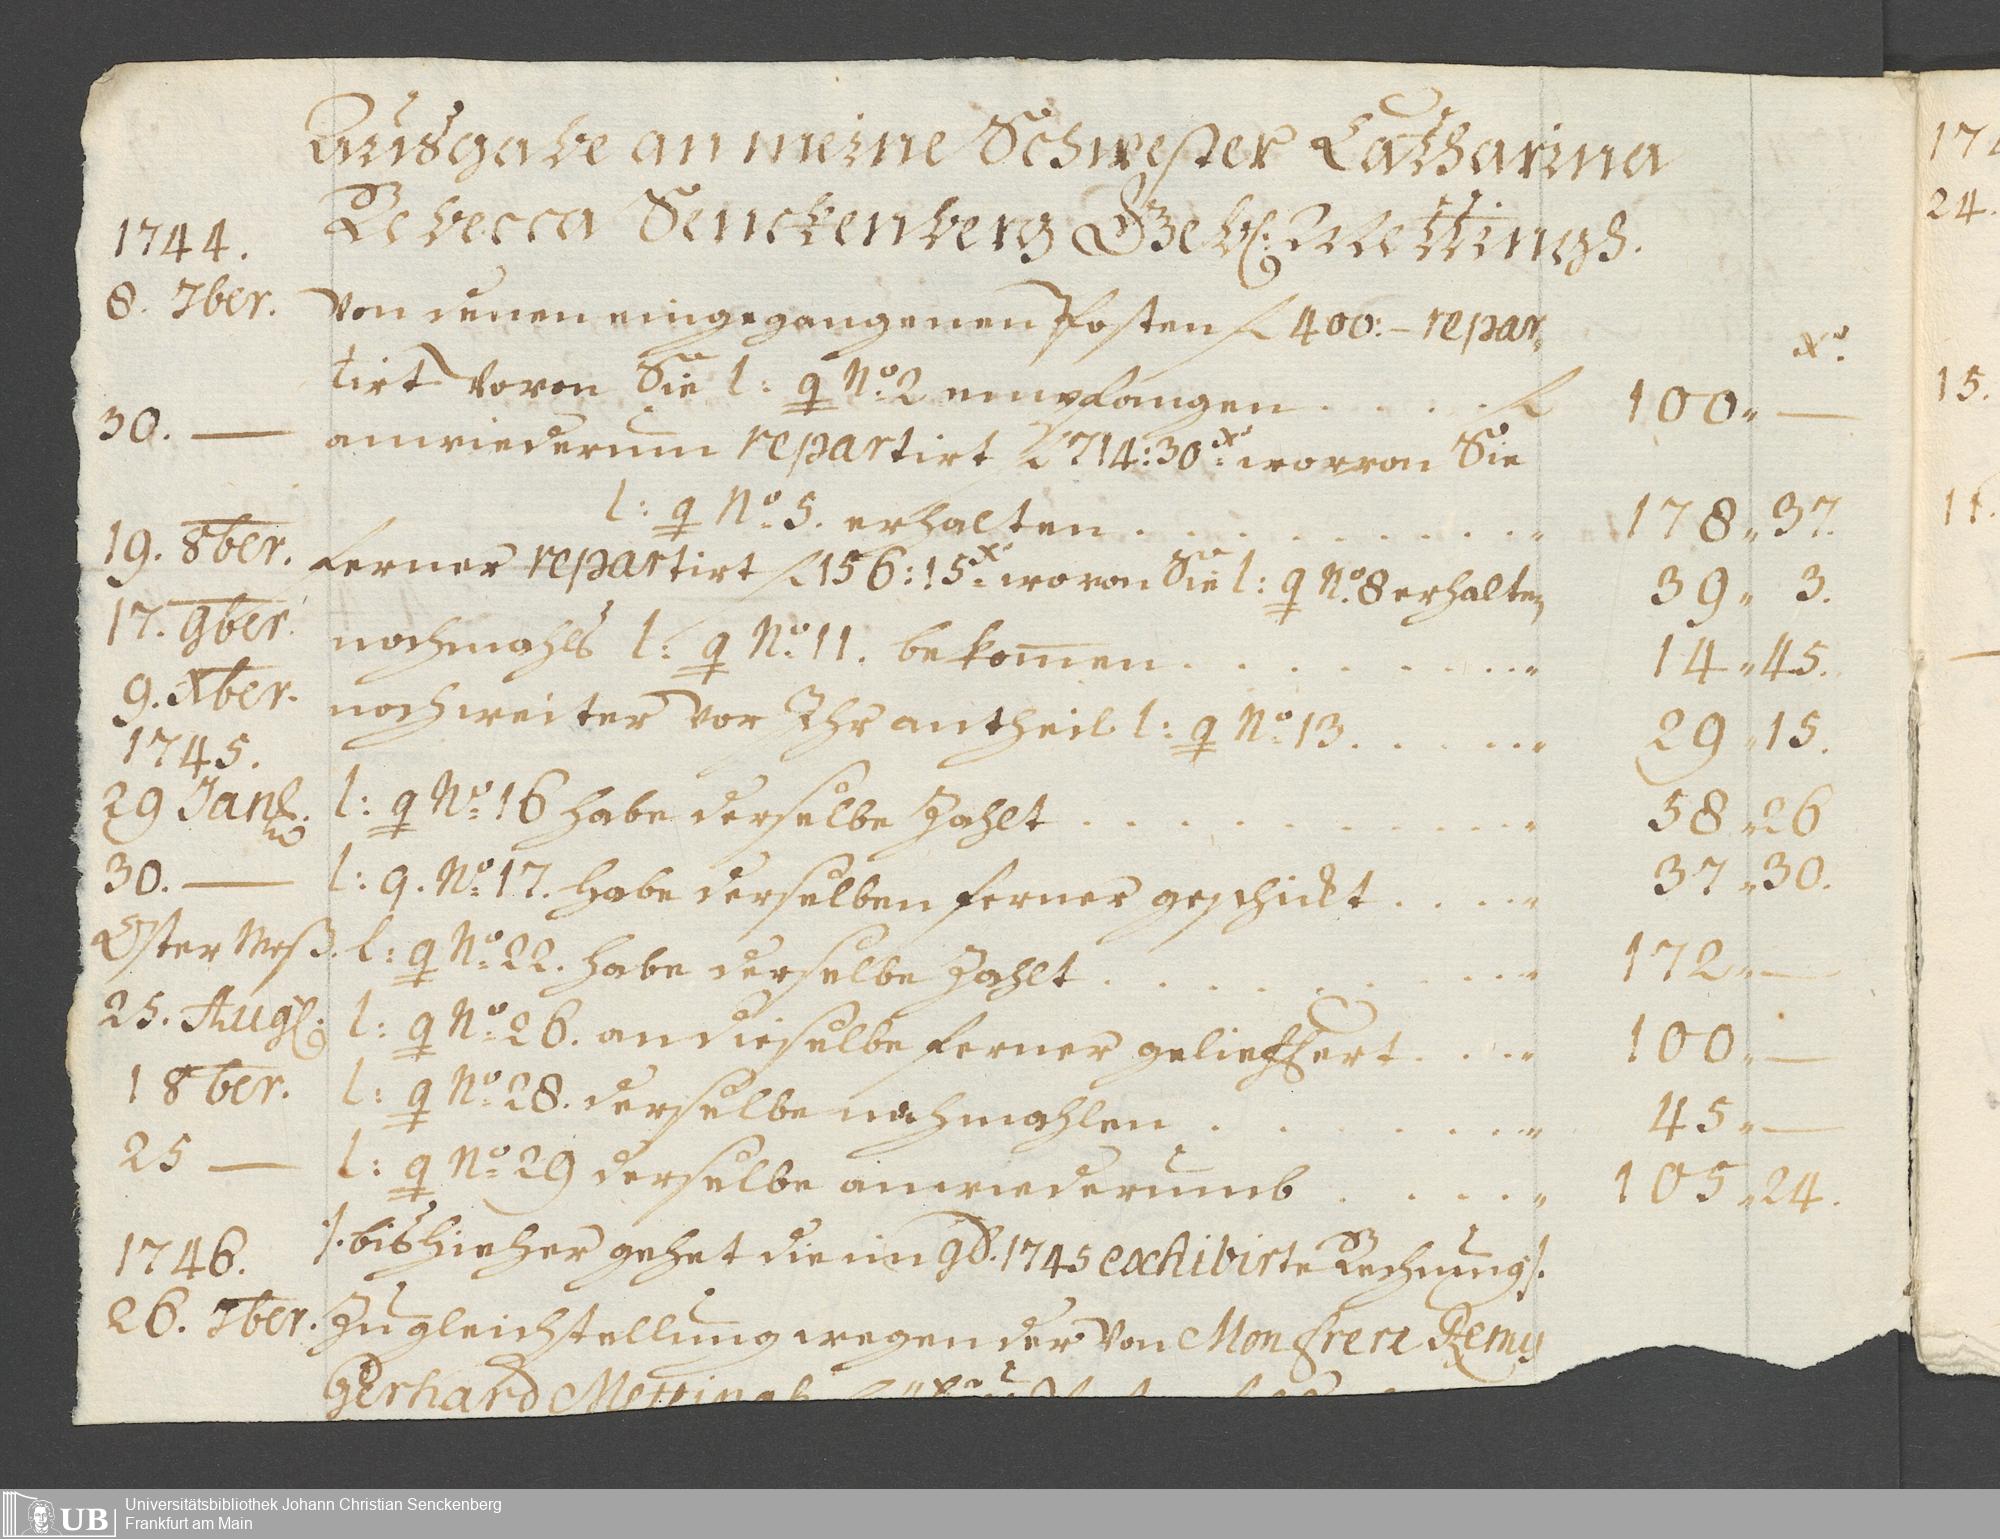 Ausgabe an meine Schwester Catharina
Rebecca Senckenberg Geb. Mettingh.
1744.
8. 7ber. Von denen eingegangenen Posten f 400:— repar,
tirt Vovon Sie l: q No. 2 empfangen . . . . f 100 " —
xr.
30. — anwiederum repartirt f 714:30 xr. worvon Sie
l: q No. 5. erhalten . . . . . . . . . " 178 " 37.
19. 8ber. ferner repartirt f 156:15 xr. wovon Sie l: q No. 8 erhalten 39 " 3.
17. 9ber. nochmahls l: q No. 11. bekom̅en . . . . . . . " 14 " 45.
9. Xber. noch weiter vor Ihr antheil l: q No. 13. . . . . . " 29 " 15.
1745.
29 Jan. l: q No. 16 habe derselbe Zahlt . . . . . . . . . . " 58 " 26
30. — l: q. No. 17. habe derselben ferner geschickt . . . . " 37 " 30.
Oster Meß. l: q No. 22. habe derselbe Zahlt . . . . . . . . " 172 " —
25. Aug. l: q No. 26. an dieselbe ferner gelieffert . . . " 100 " —
1 8ber. l: q No. 28. derselbe nachmahlen . . . . . . . " 45 " —
25 — l: q No. 29 derselbe anwiederumb . . . . . " 105 " 24.
1746. /. bis hieher gehet die im 1745 exhibirte Rechnung /.
26. 7ber. Zu gleichstellung wegen der von Mon frere Remy
Gerhard Mettingh
174
24.
15.
11.
UB Universitätsbibliothek Johann Christian Senckenberg
Frankfurt am Main